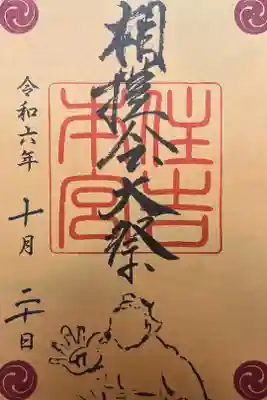 相撲会大祭
住吉
本宮
令和六年
十月
二十日